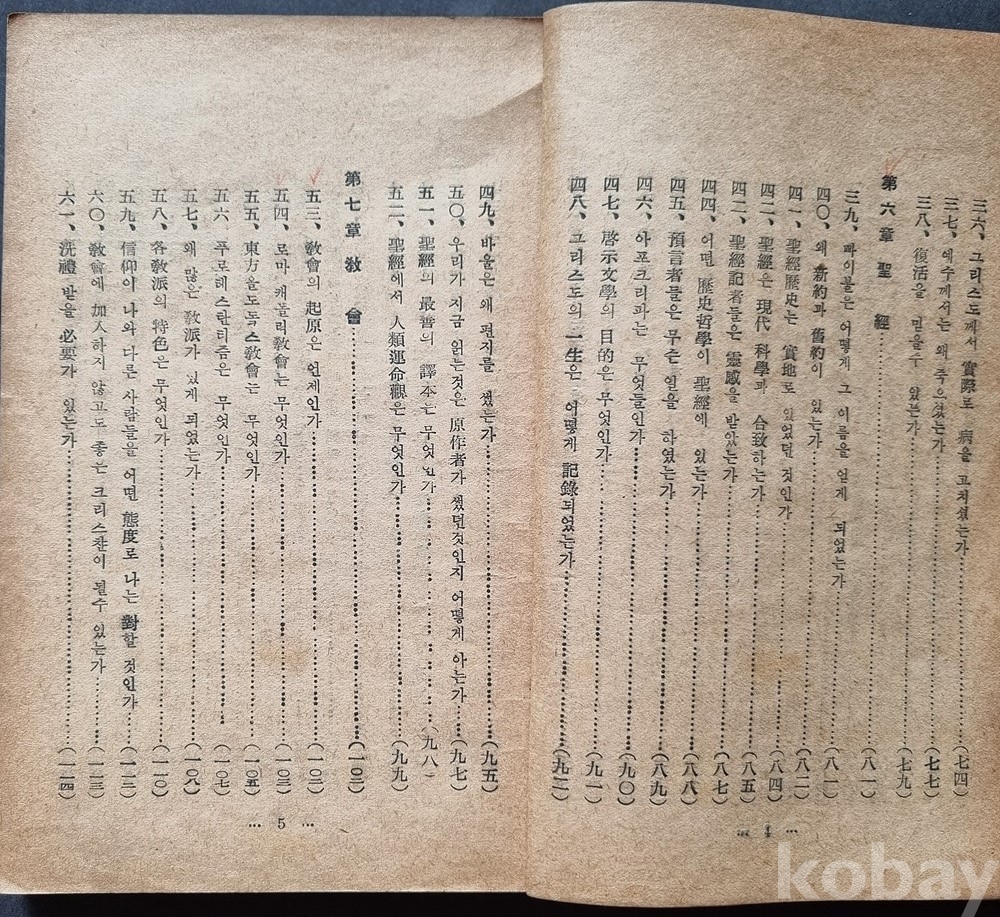 三六、그리스도께서 實際로 病을 고치셨는가……(七四)
三七、예수께서는 왜 죽으셨는가……(七七)
三八、復活을 믿을수 있는가……(七九)
第六章 聖 經……(八一)
三九、바이블은 어떻게 그 이름을 얻게 되었는가
四〇、왜 新約과 舊約이 있는가……(八一)
四一、聖經歷史는 實地로 있었던 것인가……(八二)
四二、聖經은 現代 科學과 合致하는가……(八四)
四三、聖經記者들은 靈感을 받았는가……(八五)
四四、어떤 歷史哲學이 聖經에 있는가……(八七)
四五、預言者들은 무슨 일을 하였는가……(八八)
四六、아포크리파는 무엇들인가……(八九)
四七、啓示文學의 目的은 무엇인가……(九〇)
四八、그리스도의 一生은 어떻게 記錄되었는가……(九一)
(九二)
… 4 …
四九、바울은 왜 편지를 썼는가……(九五)
五〇、우리가 지금 읽는것은 原作者가 썼던것인지 어떻게 아는가……(九七)
五一、聖經의 最善의 譯本은 무엇인가……(九八)
五二、聖經에서 人類運命觀은 무엇인가……(九九)
第七章 敎 會……(一〇二)
五三、敎會의 起原은 언제인가……(一〇二)
五四、로마 캐톨릭敎會는 무엇인가……(一〇三)
五五、東方올도돜스敎會는 무엇인가……(一〇五)
五六、푸로테스탄리즘은 무엇인가……(一〇七)
五七、왜 많은 敎派가 있게 되었는가……(一〇八)
五八、各敎派의 特色은 무엇인가……(一一〇)
五九、信仰이 나와 다른 사람들을 어떤 態度로 나는 對할 것인가……(一一二)
六〇、敎會에 加入하지 않고도 좋은 크리스찬이 될수 있는가……(一一三)
六一、洗禮 받을 必要가 있는가……(一一四)
… 5 …
kobay